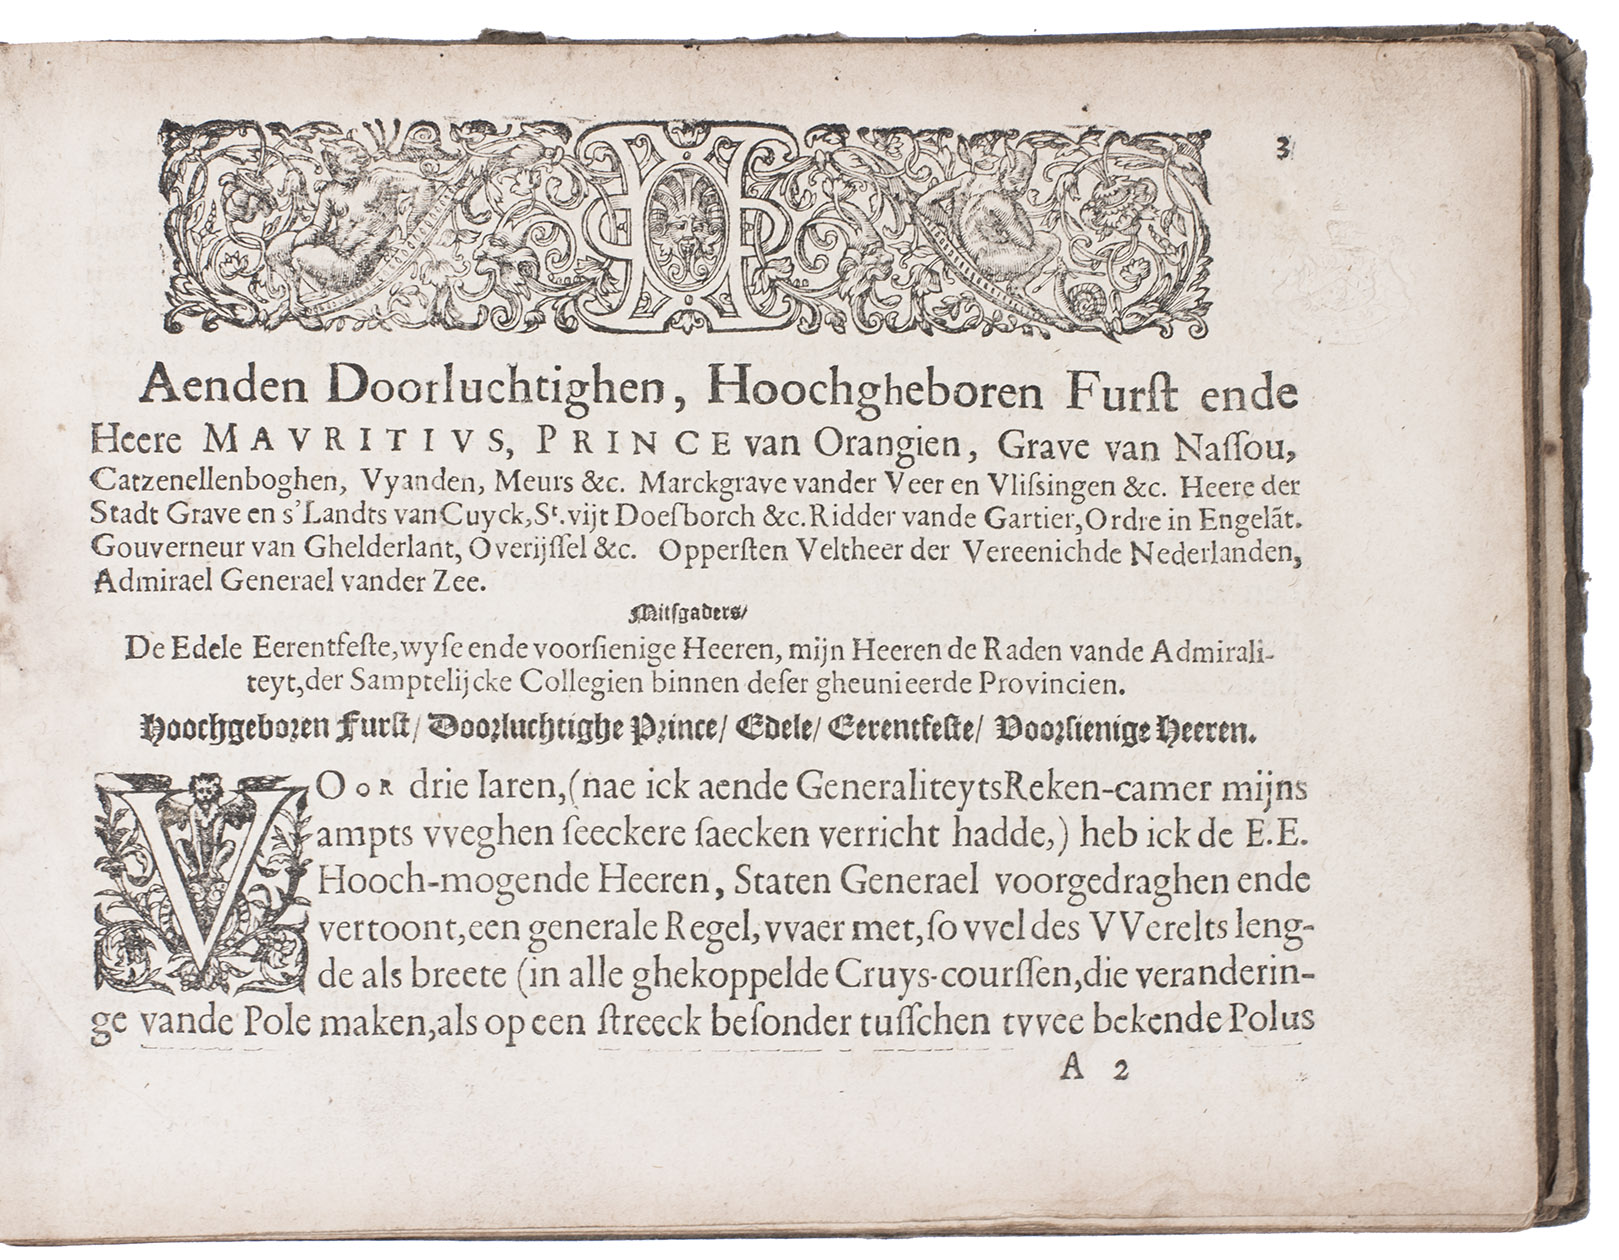 3
Aenden Doorluchtighen, Hoochgheboren Furſt ende
Heere MAVRITIVS, PRINCE van Orangien, Grave van Naſſou,
Catzenellenboghen, Vyanden, Meurs &c. Marckgrave vander Veer en Vliſsingen &c. Heere der
Stadt Grave en s'Landts van Cuyck, St. vijt Doeſborch &c. Ridder vande Gartier, Ordre in Engelãt.
Gouverneur van Ghelderlant, Overijſſel &c. Opperſten Veltheer der Vereenichde Nederlanden,
Admirael Generael vander Zee.
Mitſgaders/
De Edele Eerentfeſte, wyſe ende voorſienige Heeren, mijn Heeren de Raden vande Admirali-
teyt, der Samptelijcke Collegien binnen deſer gheunieerde Provincien.
Hoochgeboren Furſt/ Doorluchtighe Prince/ Edele/ Eerentfeſte/ Voorſienige Heeren.
VOOR drie Iaren, (nae ick aende GeneraliteytsReken-camer mijns
ampts vveghen ſeeckere ſaecken verricht hadde,) heb ick de E.E.
Hooch-mogende Heeren, Staten Generael voorgedraghen ende
vertoont, een generale Regel, vvaer met, ſo vvel des VVerelts leng-
de als breete (in alle ghekoppelde Cruys-courſſen, die veranderin-
ge vande Pole maken, als op een ſtreeck beſonder tuſſchen tvvee bekende Polus
A 2